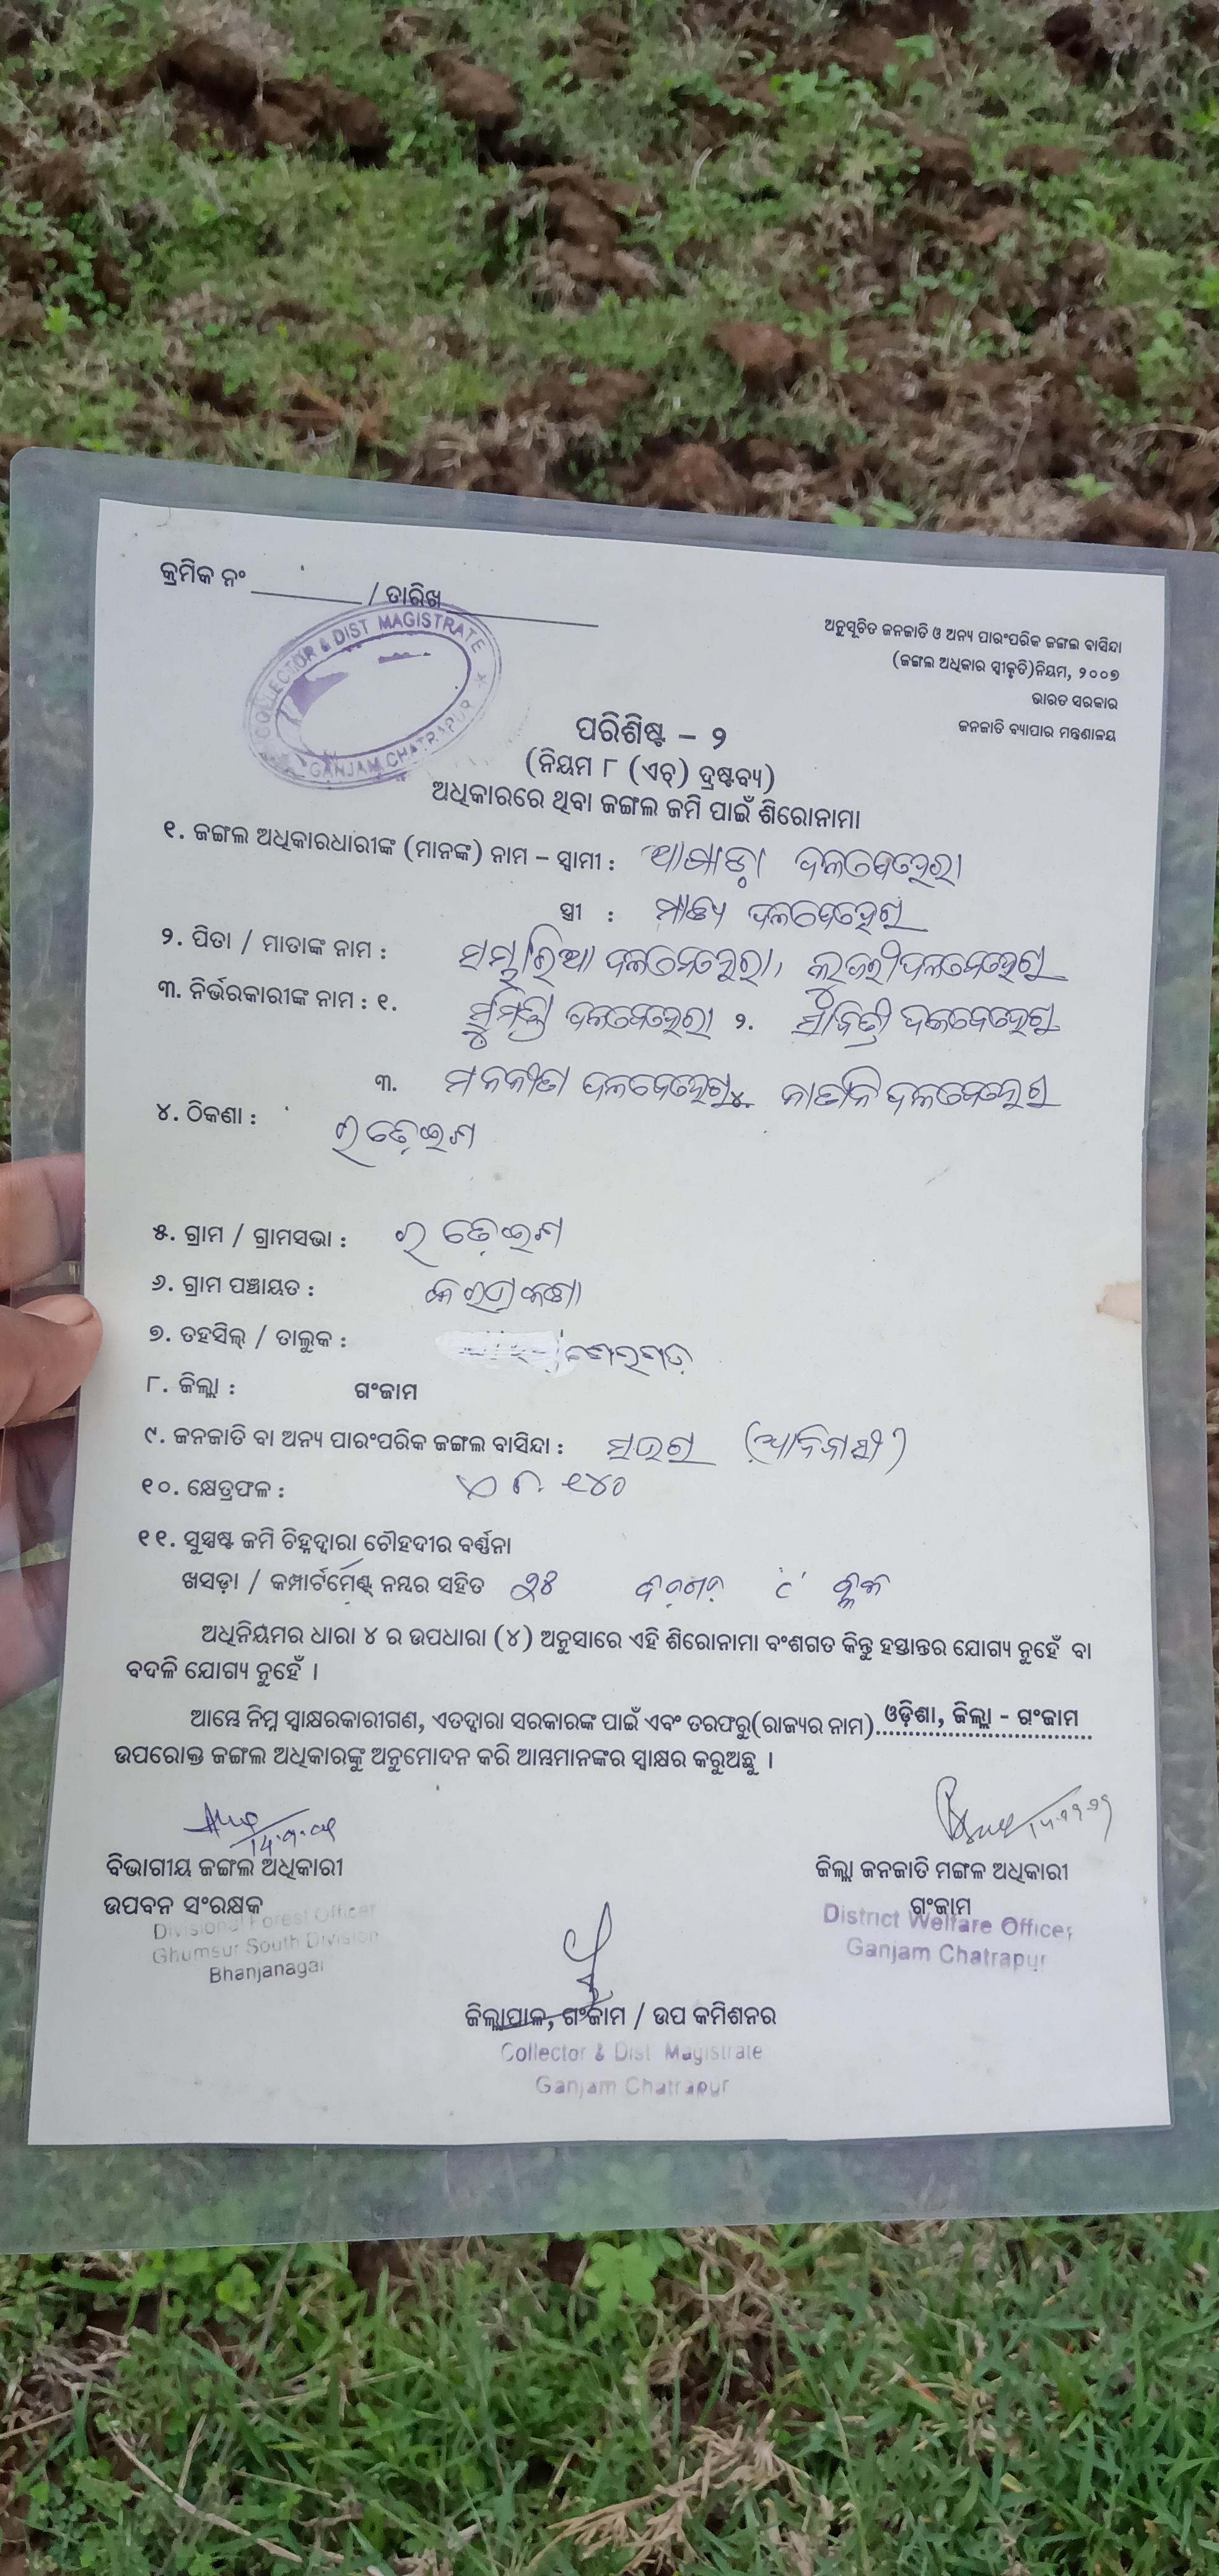 କ୍ରମିକ ନଂ ________ / ତାରିଖ ___________
COLLECTOR & DIST MAGISTRATE
GANJAM CHATRAPUR
ଅନୁସୂଚିତ ଜନଜାତି ଓ ଅନ୍ୟ ପାରଂପରିକ ଜଙ୍ଗଲ ବାସିନ୍ଦା
(ଜଙ୍ଗଲ ଅଧିକାର ସ୍ୱୀକୃତି)ନିୟମ, ୨୦୦୭
ଭାରତ ସରକାର
ଜନଜାତି ବ୍ୟାପାର ମନ୍ତ୍ରଣାଳୟ
ପରିଶିଷ୍ଟ – ୨
(ନିୟମ ୮ (ଏଚ୍) ଦ୍ରଷ୍ଟବ୍ୟ)
ଅଧିକାରରେ ଥିବା ଜଙ୍ଗଲ ଜମି ପାଇଁ ଶିରୋନାମା
୧. ଜଙ୍ଗଲ ଅଧିକାରଧାରୀଙ୍କ (ମାନଙ୍କ) ନାମ – ସ୍ୱାମୀ : ଦଳବେହେରା
ସ୍ତ୍ରୀ : ଦଳବେହେରା
୨. ପିତା / ମାତାଙ୍କ ନାମ : ଦଳବେହେରା, ଦଳବେହେରା
୩. ନିର୍ଭରକାରୀଙ୍କ ନାମ : ୧. ଦଳବେହେରା ୨. ସାବିତ୍ରୀ ଦଳବେହେରା
୩. ଦଳବେହେରା ୪. ଦଳବେହେରା
୪. ଠିକଣା :
୫. ଗ୍ରାମ / ଗ୍ରାମସଭା :
୬. ଗ୍ରାମ ପଞ୍ଚାୟତ :
୭. ତହସିଲ୍ / ତାଲୁକ : ଶେରଗଡ଼
୮. ଜିଲ୍ଲା : ଗଂଜାମ
୯. ଜନଜାତି ବା ଅନ୍ୟ ପାରଂପରିକ ଜଙ୍ଗଲ ବାସିନ୍ଦା : ସଉରା (ଆଦିବାସୀ)
୧୦. କ୍ଷେତ୍ରଫଳ :
୧୧. ସୁସ୍ପଷ୍ଟ ଜମି ଚିହ୍ନଦ୍ୱାରା ଚୌହଦୀର ବର୍ଣ୍ଣନା
ଖସଡ଼ା / କମ୍ପାର୍ଟମେଣ୍ଟ ନମ୍ବର ସହିତ 'c' ବ୍ଲକ
ଅଧିନିୟମର ଧାରା ୪ ର ଉପଧାରା (୪) ଅନୁସାରେ ଏହି ଶିରୋନାମା ବଂଶଗତ କିନ୍ତୁ ହସ୍ତାନ୍ତର ଯୋଗ୍ୟ ନୁହେଁ ବା
ବଦଳି ଯୋଗ୍ୟ ନୁହେଁ ।
ଆମ୍ଭେ ନିମ୍ନ ସ୍ୱାକ୍ଷରକାରୀଗଣ, ଏତଦ୍ୱାରା ସରକାରଙ୍କ ପାଇଁ ଏବଂ ତରଫରୁ(ରାଜ୍ୟର ନାମ) ଓଡ଼ିଶା, ଜିଲ୍ଲା - ଗଂଜାମ
ଉପରୋକ୍ତ ଜଙ୍ଗଲ ଅଧିକାରଙ୍କୁ ଅନୁମୋଦନ କରି ଆମ୍ଭମାନଙ୍କର ସ୍ୱାକ୍ଷର କରୁଅଛୁ ।
ବିଭାଗୀୟ ଜଙ୍ଗଲ ଅଧିକାରୀ
ଉପବନ ସଂରକ୍ଷକ
Divisional Forest Officer
Ghumsur South Division
Bhanjanagar
ଜିଲ୍ଲା ଜନଜାତି ମଙ୍ଗଳ ଅଧିକାରୀ
ଗଂଜାମ
District Welfare Officer,
Ganjam Chatrapur
ଜିଲ୍ଲାପାଳ, ଗଂଜାମ / ଉପ କମିଶନର
Collector & Dist. Magistrate
Ganjam Chatrapur